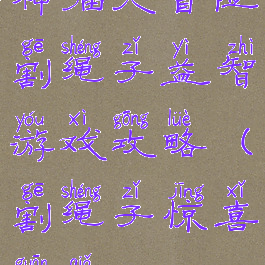 gē shéng zǐ yì zhì
割绳子益智
yóu xì gōng lüè
游戏攻略（
gē shéng zǐ jīng xǐ
割绳子惊喜